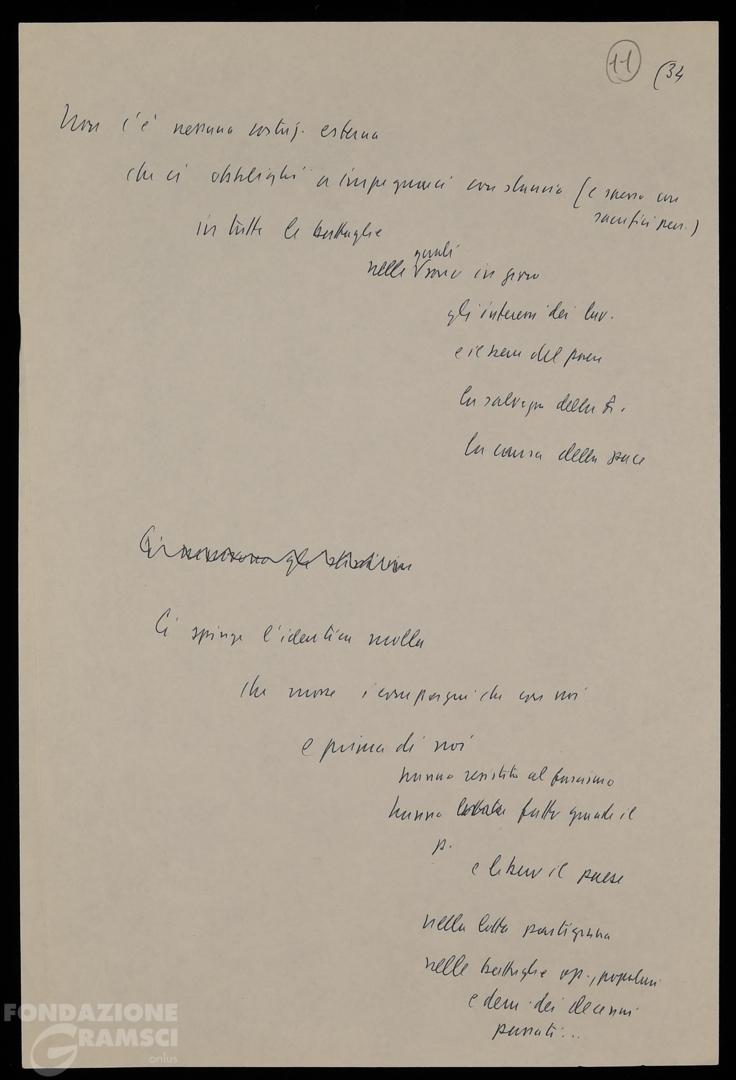 11 (34
Non c'è nessuna costriz. esterna
che ci obblighi a impegnarci con slancio (e spesso con
sacrifici pers.)
in tutte le battaglie
quali
nelle sono in gioco
gli interessi dei lav.
e il bene del paese
la salvezza della
la causa della pace
Ci
Ci spinge l'identica molla
che mosse i compagni che con noi
e prima di noi
hanno resistito al fascismo
hanno fatto grande il
p.
e libero il paese
nella lotta partigiana
nelle battaglie op., popolari
e dem. dei decenni
passati...
FONDAZIONE
GRAMSCI
onlus